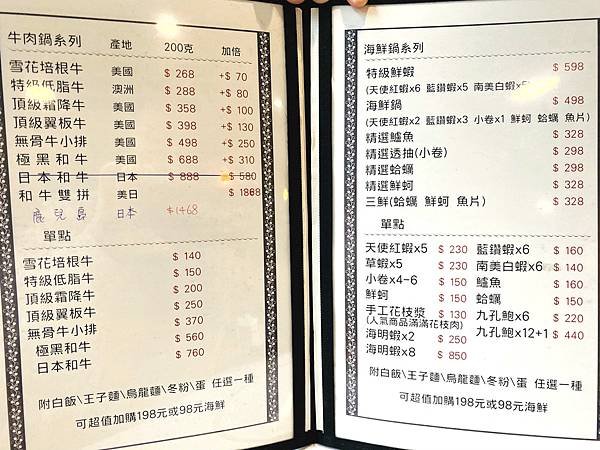 牛肉鍋系列 產地 200克 加倍
雪花培根牛 美國 $ 268 +$ 70
特級低脂牛 澳洲 $ 288 +$ 80
頂級霜降牛 美國 $ 358 +$ 100
頂級翼板牛 美國 $ 398 +$ 130
無骨牛小排 美國 $ 498 +$ 250
極黑和牛 美國 $ 688 +$ 310
日本和牛 日本 $ 888 +$ 580
和牛雙拼 美日 $ 1868
鹿兒島 日本 $1468
單點
雪花培根牛 $ 140
特級低脂牛 $ 150
頂級霜降牛 $ 200
頂級翼板牛 $ 250
無骨牛小排 $ 370
極黑和牛 $ 560
日本和牛 $ 760
附白飯\王子麵\烏龍麵\冬粉\蛋 任選一種
可超值加購198元或98元海鮮
海鮮鍋系列
特級鮮蝦 $ 598
(天使紅蝦x6 藍鑽蝦x5 南美白蝦x5
海鮮鍋 $ 498
(天使紅蝦x2 藍鑽蝦x3 小卷x1 鮮蚵 蛤蠣 魚片)
精選鱸魚 $ 328
精選透抽(小卷) $ 298
精選蛤蠣 $ 298
精選鮮蚵 $ 328
三鮮(蛤蠣 鮮蚵 魚片) $ 328
單點
天使紅蝦x5 $ 230 藍鑽蝦x6 $ 160
草蝦x5 $ 230 南美白蝦x6 $ 140
小卷x4-6 $ 150 鱸魚 $ 160
鮮蚵 $ 150 蛤蠣 $ 150
手工花枝漿 $ 130 九孔鮑x6 $ 220
(人氣商品滿滿花枝肉)
海明蝦x2 $ 250 九孔鮑x12+1 $ 440
海明蝦x8 $ 850
附白飯\王子麵\烏龍麵\冬粉\蛋 任選一種
可超值加購198元或98元海鮮